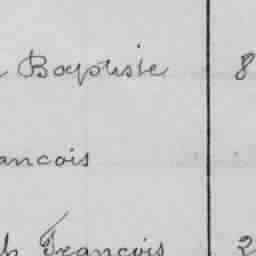 Baptiste 8
ancois
François 2